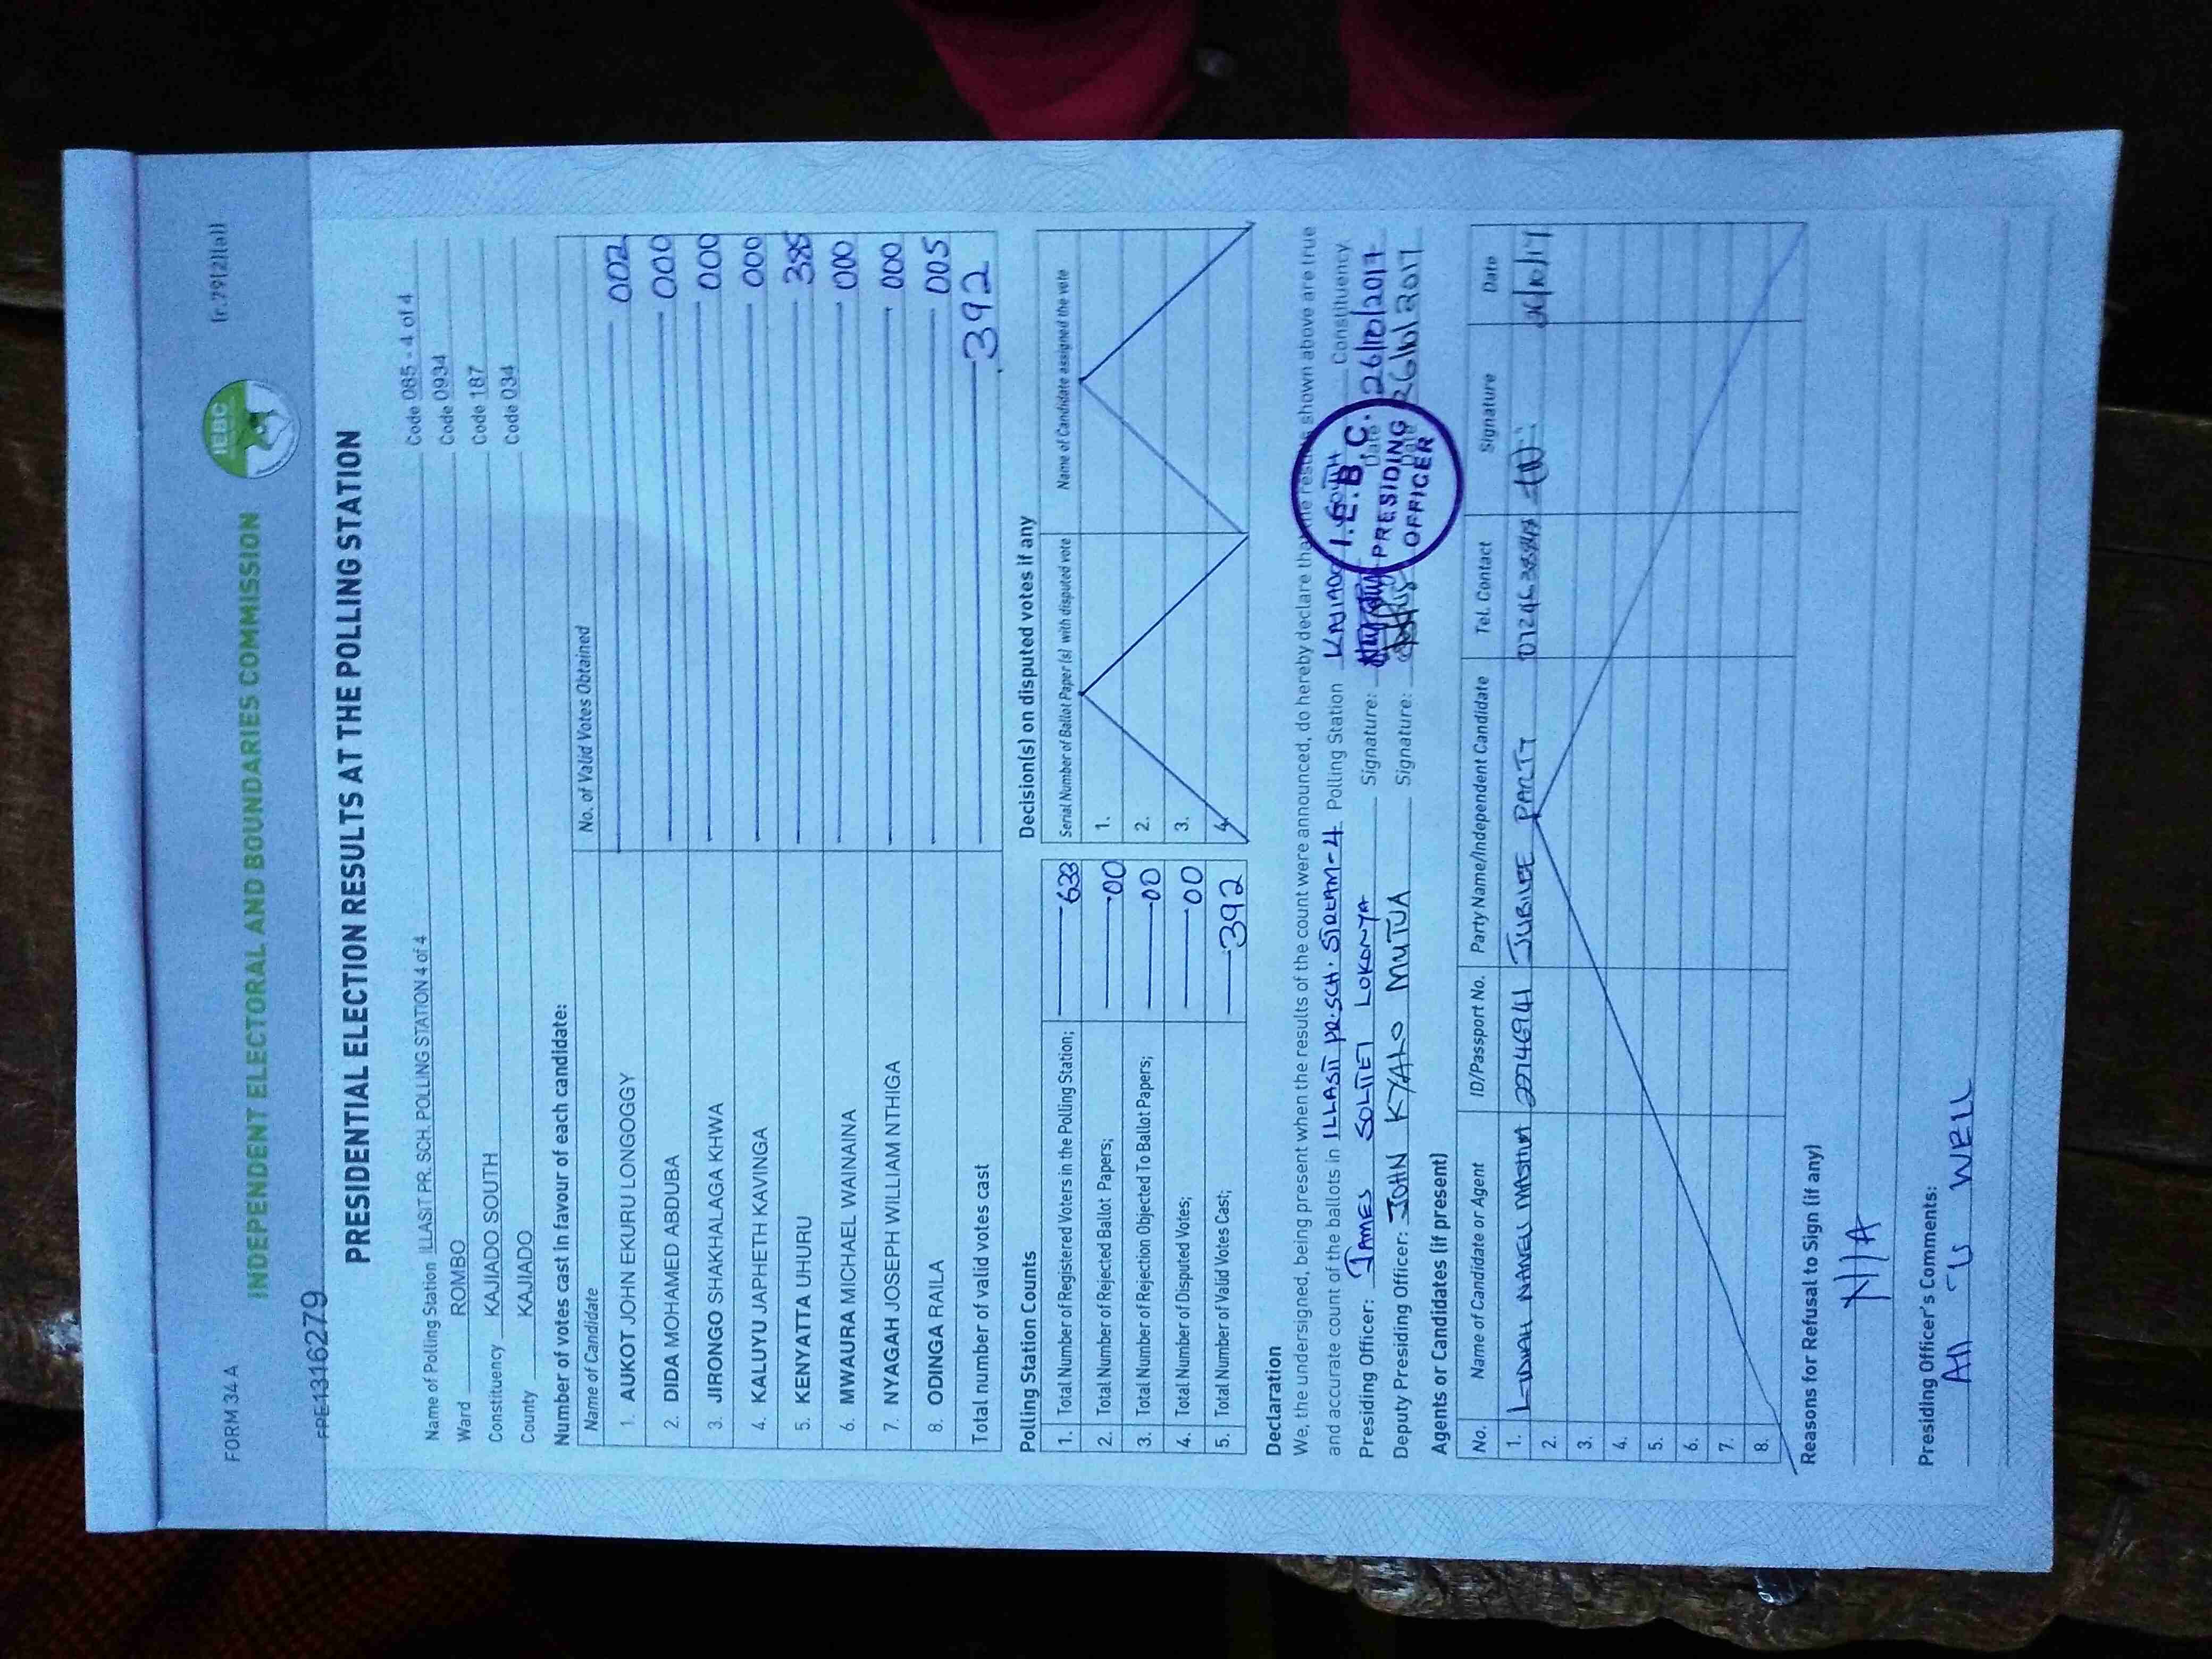 FORM 34 A
(r.79(2)(a))
IEBC
INDEPENDENT ELECTORAL AND BOUNDARIES COMMISSION
PRE1316279
PRESIDENTIAL ELECTION RESULTS AT THE POLLING STATION
Name of Polling Station ILLASIT PR. SCH. POLLING STATION 4 of 4 Code 085 - 4 of 4
Ward ROMBO Code 0934
Constituency KAJIADO SOUTH Code 187
County KAJIADO Code 034
Number of votes cast in favour of each candidate:
Name of Candidate No. of Valid Votes Obtained
1. AUKOT JOHN EKURU LONGOGGY 002
2. DIDA MOHAMED ABDUBA 000
3. JIRONGO SHAKHALAGA KHWA 000
4. KALUYU JAPHETH KAVINGA 000
5. KENYATTA UHURU 385
6. MWAURA MICHAEL WAINAINA 000
7. NYAGAH JOSEPH WILLIAM NTHIGA 000
8. ODINGA RAILA 005
Total number of valid votes cast 392
Polling Station Counts
1. Total Number of Registered Voters in the Polling Station; 633
2. Total Number of Rejected Ballot Papers; 00
3. Total Number of Rejection Objected To Ballot Papers; 00
4. Total Number of Disputed Votes; 00
5. Total Number of Valid Votes Cast; 392
Decision(s) on disputed votes if any
Serial Number of Ballot Paper(s) with disputed vote Name of Candidate assigned the vote
1.
2.
3.
4.
Declaration
We, the undersigned, being present when the results of the count were announced, do hereby declare that the results shown above are true
and accurate count of the ballots in ILLASIT PR.SCH. STREAM-4 Polling Station KAJIADO SOUTH Constituency.
Presiding Officer: JAMES SOLITEI LOKONYA Signature: Date 26/10/2017
Deputy Presiding Officer: JOHN KYALO MUTUA Signature: Date 26/10/2017
I.E.B.C.
PRESIDING
OFFICER
Agents or Candidates (if present)
No. Name of Candidate or Agent ID/Passport No. Party Name/Independent Candidate Tel. Contact Signature Date
1. JUBILEE PARTY 26/10/17
2.
3.
4.
5.
6.
7.
8.
Reasons for Refusal to Sign (if any)
N/A
Presiding Officer's Comments:
All is WELL